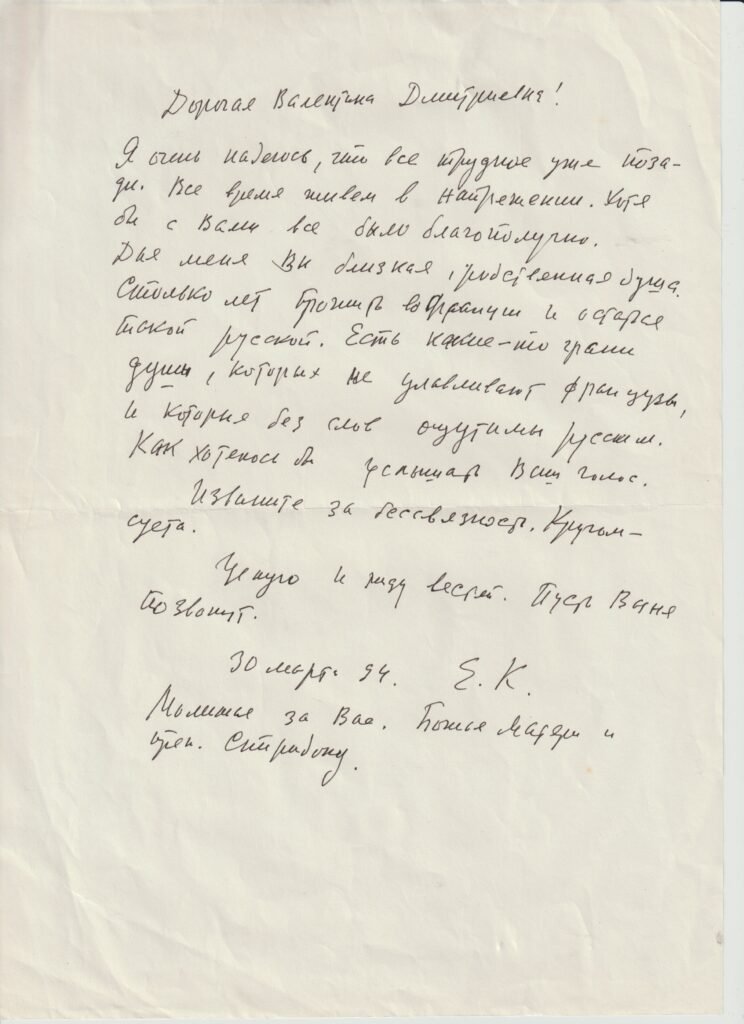 Дорогая Валентина Дмитриевна!
Я очень надеюсь, что все трудное уже поза-
ди. Все время живем в напряжении. Хотя
бы с Вами все было благополучно.
Для меня Вы близкая, родственная душа.
Столько лет прожить во Франции и остаться
такой русской. Есть какие-то грани
души, которых не улавливают французы,
и которые без слов ощутимы русским.
Как хотелось бы услышать Ваш голос.
Извините за бессвязность. Кругом –
суета.
Целую и жду вестей. Пусть Ваня
позвонит.
30 марта 94. Е. К.
Молимся за Вас. Божьей Матери и
Страбону.